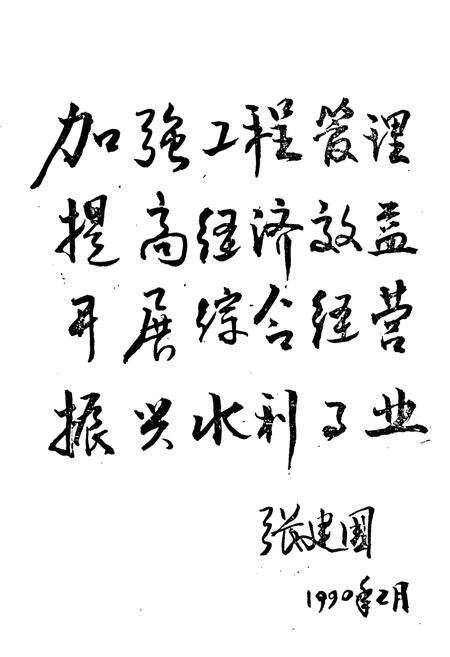 加强工程管理
提高经济效益
开展综合经营
振兴水利事业
张建国
1990年2月